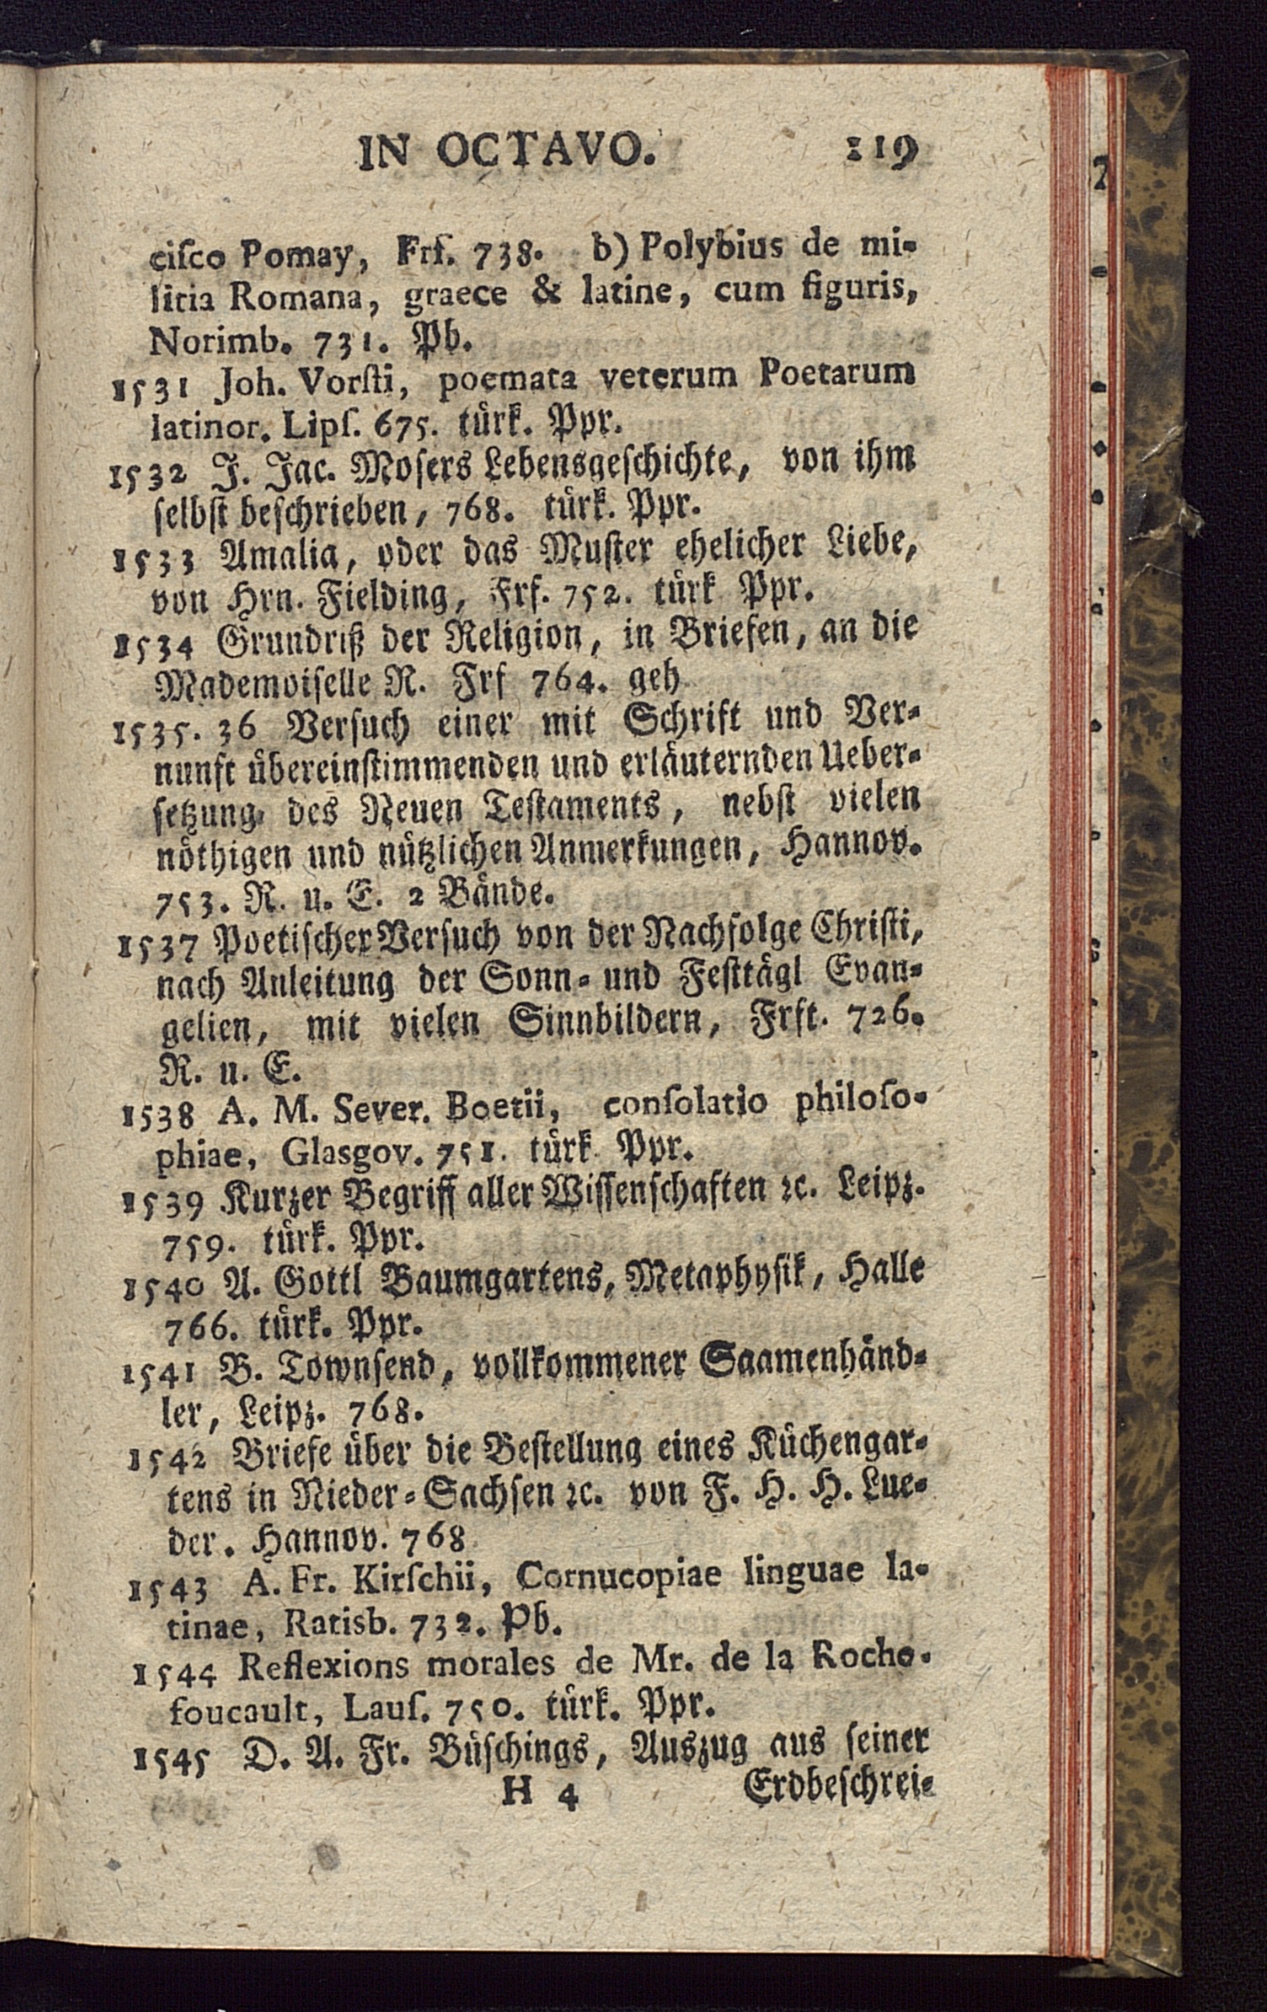 IN OCTAVO. 119
ciſco Pomay, Frf. 738. b) Polybius de mi-
litia Romana, graece & latine, cum figuris,
Norimb. 731. Pb.
1531 Joh. Vorſti, poemata veterum Poetarum
latinor. Lipſ. 675. türk. Ppr.
1532 J. Jac. Moſers Lebensgeſchichte, von ihm
ſelbſt beſchrieben, 768. türk. Ppr.
1533 Amalia, oder das Muſter ehelicher Liebe,
von Hrn. Fielding, Frf. 752. türk Ppr.
1534 Grundriß der Religion, in Briefen, an die
Mademoiſelle R. Frf 764. geh
1535. 36 Verſuch einer mit Schrift und Ver-
nunft übereinſtimmenden und erläuternden Ueber-
ſetzung des Neuen Teſtaments, nebſt vielen
nöthigen und nützlichen Anmerkungen, Hannov.
753. R. u. E. 2 Bände.
1537 Poetiſcher Verſuch von der Nachfolge Chriſti,
nach Anleitung der Sonn- und Feſttägl Evan-
gelien, mit vielen Sinnbildern, Frft. 726.
R. u. E.
1538 A. M. Sever. Boetii, conſolatio philoſo-
phiae, Glasgov. 751. türk Ppr.
1539 Kurzer Begriff aller Wiſſenſchaften ꝛc. Leipz.
759. türk. Ppr.
1540 A. Gottl Baumgartens, Metaphyſik, Halle
766. türk. Ppr.
1541 B. Townſend, vollkommener Saamenhänd-
ler, Leipz. 768.
1542 Briefe über die Beſtellung eines Küchengar-
tens in Nieder-Sachſen ꝛc. von F. H. H. Lue-
der. Hannov. 768
1543 A. Fr. Kirſchii, Cornucopiae linguae la-
tinae, Ratisb. 732. Pb.
1544 Reflexions morales de Mr. de la Roche-
foucault, Lauſ. 750. türk. Ppr.
1545 D. A. Fr. Büſchings, Auszug aus ſeiner
H 4 Erdbeſchrei-